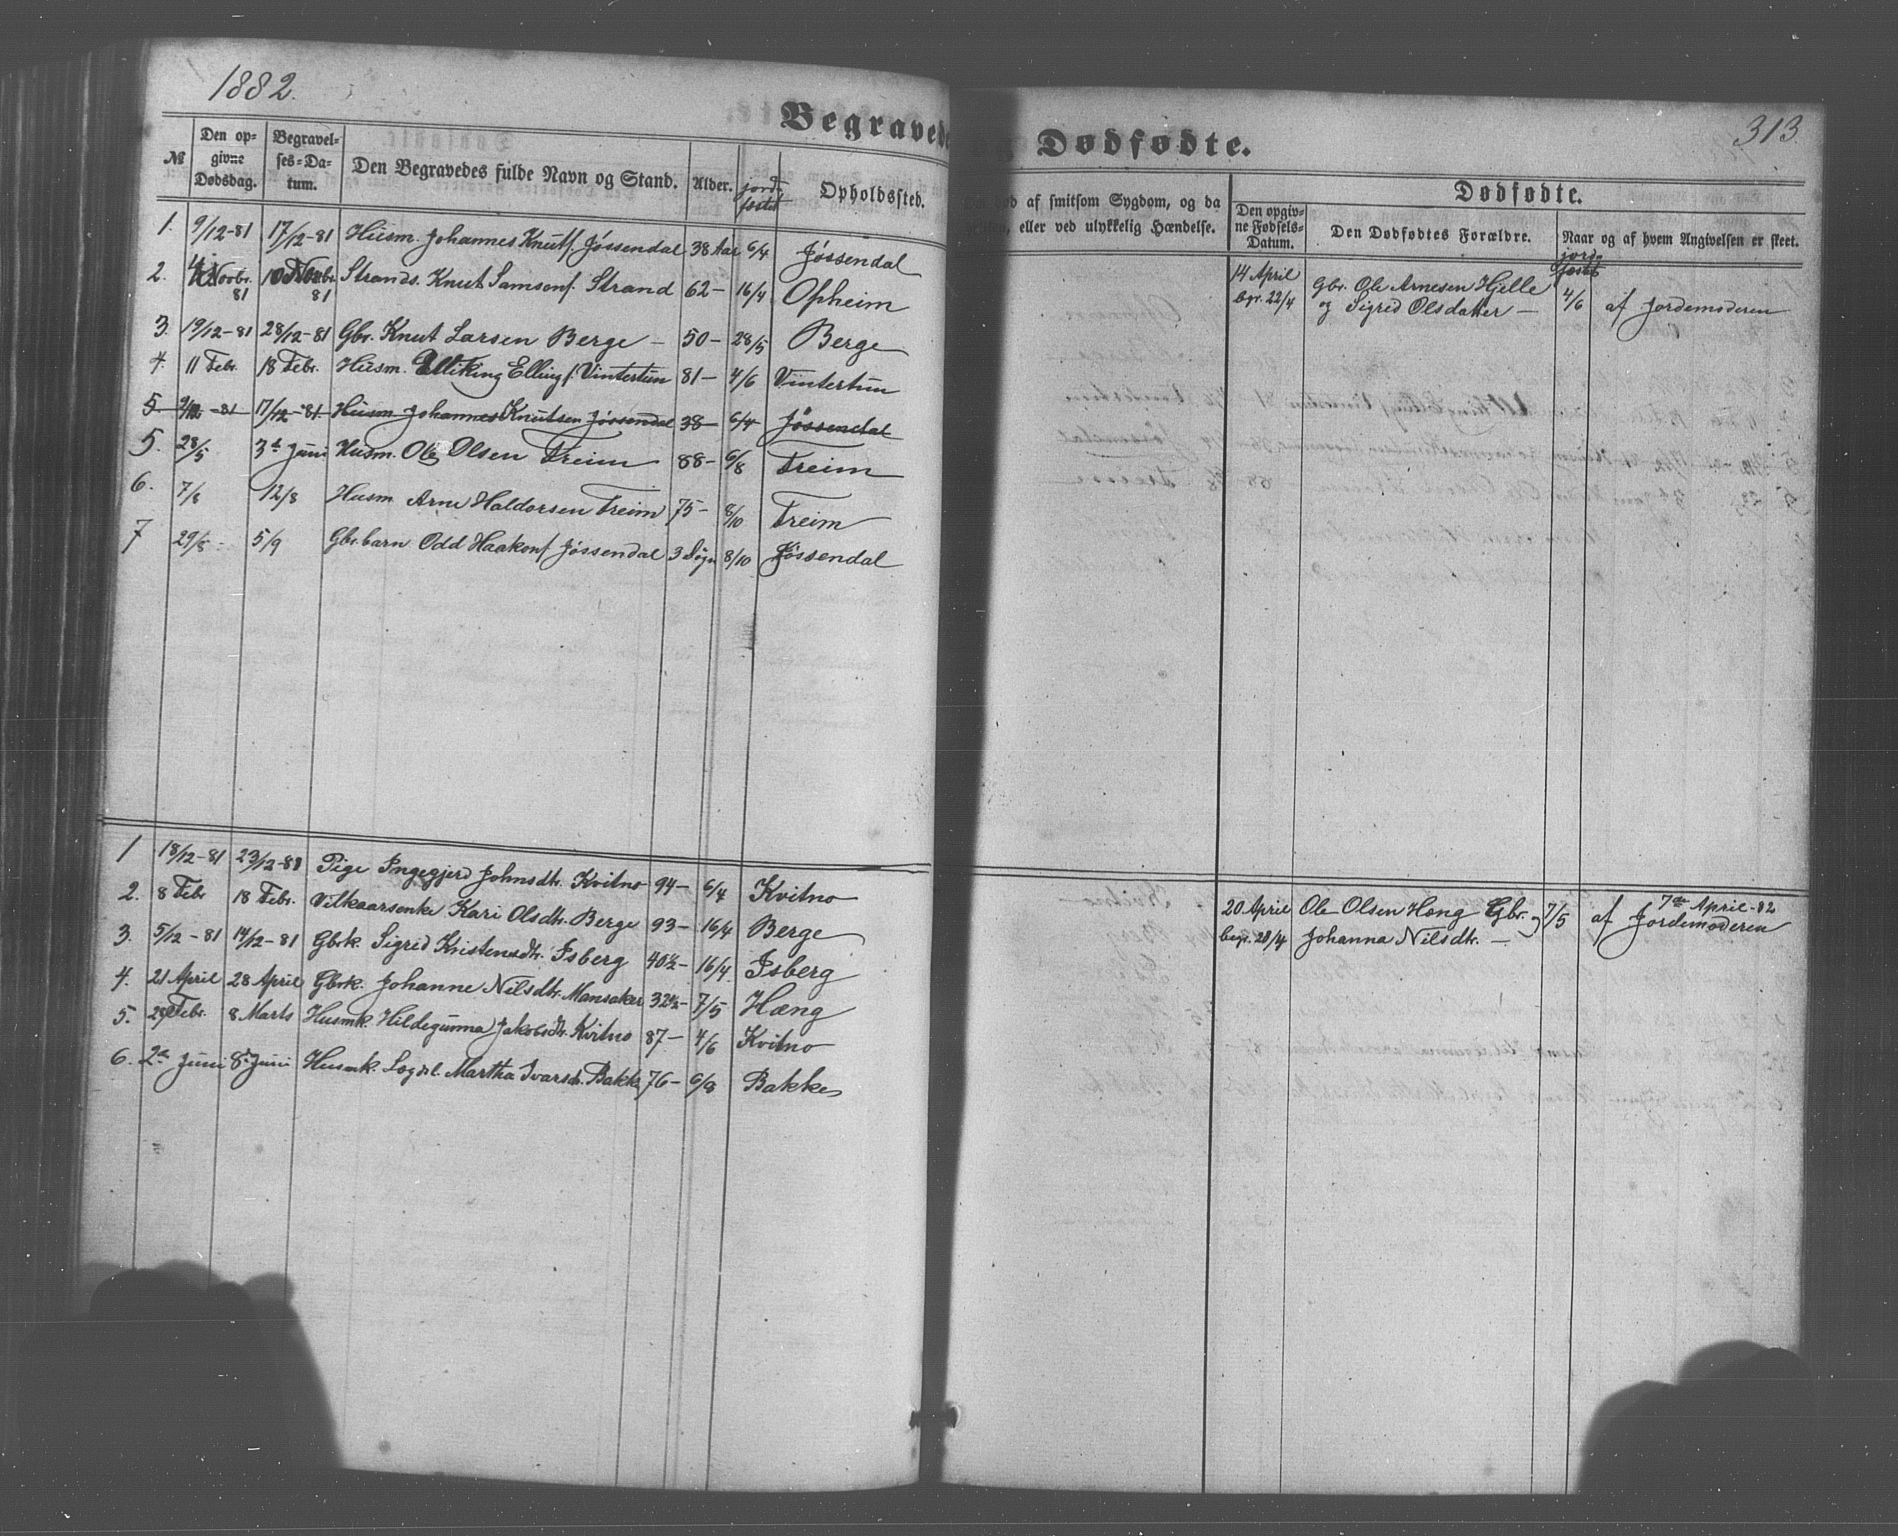 1882.
313
Begravede
Dødfødte.
№ | Den opgivne Dødsdag. | Begravelses-Datum. | Den Begravedes fulde Navn og Stand. | Alder. | jordfæstet | Opholdssted.
1. 9/12-81 17/12-81 Husm. Johannes Knuts. Jøssendal 38 Aar 6/4 Jøssendal
2. Novbr. 81 10 Novbr. 81 Strands. Knut Samsons. Strand 62 - 16/4 Opheim
3. 19/12-81 28/12-81 Gbr. Knut Larsen Berge - 50 - 28/5 Berge
4. 11 Febr. 18 Febr. Husm. Elling s. Vintertun 81 - 4/6 Vintertun
5 9/12-81 17/12-81 Husm. Johannes Knutsen Jøssendal 38 - 6/4 Jøssendal
5. 28/5 3d Juni Husm. Ole Olsen Treim 88 - 6/8 Treim
6. 7/8 12/8 Husm Arne Haldorsen Treim 75 - 8/10 Treim
7 29/8 5/9 Gbr.barn Odd Haakons. Jøssendal 3 Døgn 8/10 Jøssendal
1 18/12-81 23/12-81 Pige Ingegjerd Johnsdtr. Kvitno 94 - 6/4 Kvitno
2. 8 Febr 18 Febr. Vilkaarsenke Kari Olsdtr. Berge 93 - 16/4 Berge
3. 5/12-81 14/12-81 Gbrk. Sigrid Kristensdtr. Isberg 40½ - 16/4 Isberg
4. 21 April 28 April Gbrk. Johanne Nilsdtr. Mansaker 32½ - 7/5 Hæng
5. 28 Febr. 8 Marts Husmk. Hildegunna Jakobsdtr. Kvitno 87 - 4/6 Kvitno
6. 2d Juni 8d Juni Husmk. Lægdsl. Martha Ivarsdr. Bakke 76 - 6/8 Bakke
død af smitsom Sygdom, og da
, eller ved ulykkelig Hændelse.
Dødfødte.
Den opgivne Fødsels-Datum. | Den Dødfødtes Forældre. | jordfæstet | Naar og af hvem Angivelsen er skeet.
14 April Gbr. Ole Arnesen Hjelle
begr. 22/4 og Sigrid Olsdatter - 4/6 af Jordemoderen
20 April Ole Olsen Hæng Gbr. og 7/5 7de April-82
begr. 28/4 Johanna Nilsdtr. - af Jordemoderen